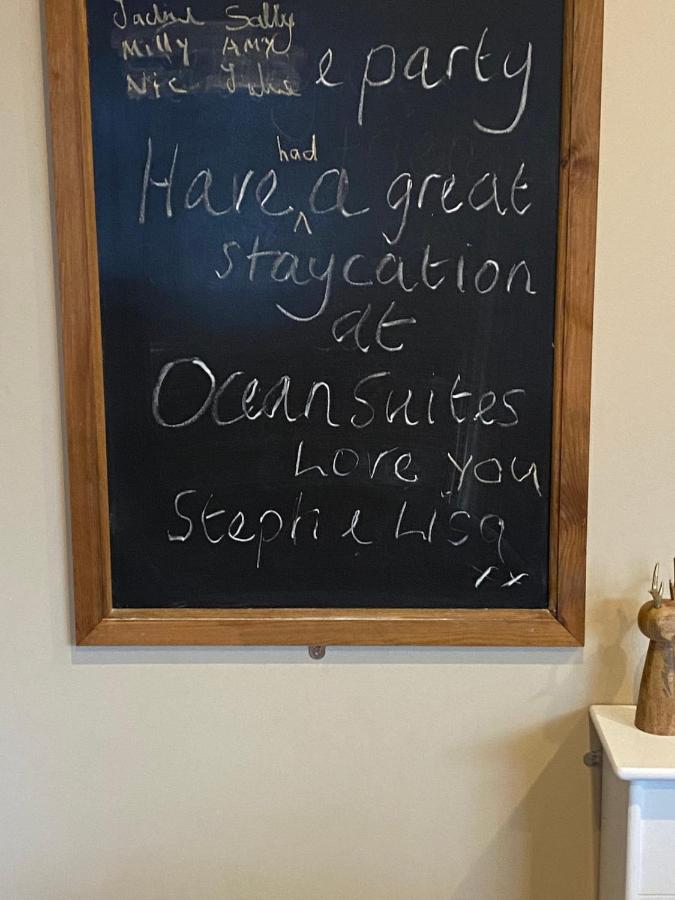 Jackie Sally
Milly AMY
Nic Julie
& party
had
Have a great
staycation
at
Ocean Suites
Love you
Steph & Lisa
xx